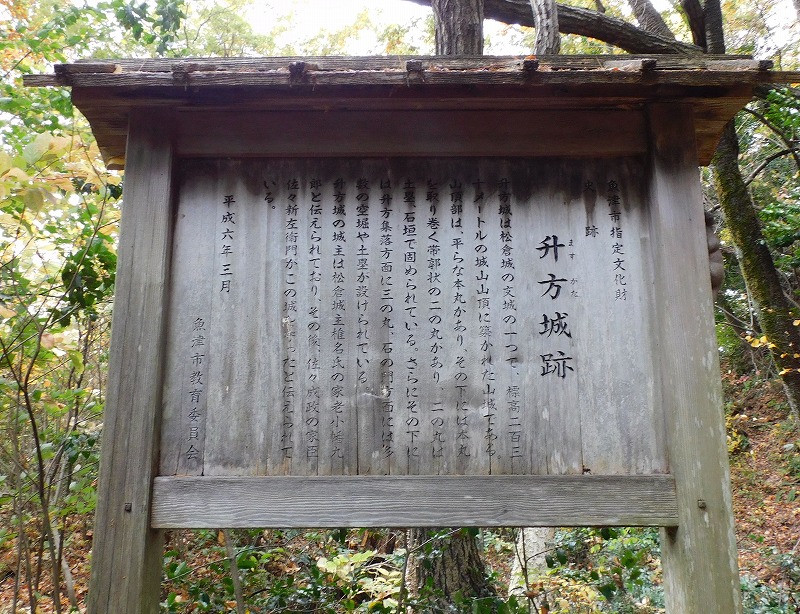 魚津市指定文化財
史跡
ますかた
升方城跡
升方城は松倉城の支城の一つで、標高二百三
十メートルの城山山頂に築かれた山城である
山頂部は、平らな本丸があり、その下には本丸
を取り巻く帯郭状の二の丸があり、二の丸は
土塁、石垣で固められている。さらにその下に
は升方集落方面に三の丸、石の門方面には多
数の空堀や土塁が設けられている。
升方城の城主は松倉城主椎名氏の家老小幡九
郎と伝えられており、その後、佐々成政の家臣
佐々新左衛門がこの城 たと伝えられて
いる。
平成六年三月
魚津市教育委員会